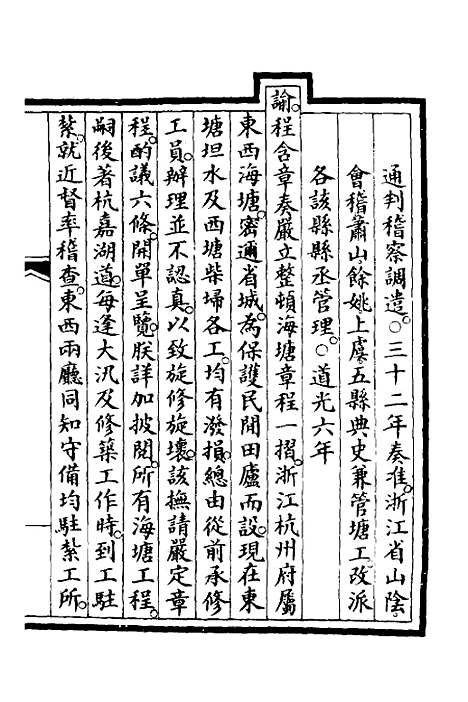 通判稽察調遣。○三十二年奏准。浙江省山陰。
會稽蕭山。餘姚。上虞。五縣典史兼管塘工改派
各該縣縣丞管理。○道光六年
諭。程含章奏嚴立整頓海塘章程一摺。浙江杭州府屬
東西海塘。密邇省城。為保護民閒田廬而設。現在東
塘坦水及西塘柴埽各工。均有潑損。總由從前承修
工員。辦理並不認真。以致旋修旋壞。該撫請嚴定章
程。酌議六條。開單呈覽。朕詳加披閱。所有海塘工程。
嗣後著杭嘉湖道。每逢大汛及修築工作時。到工駐
紮。就近督率稽查。東西兩廳同知守備均駐紮工所。